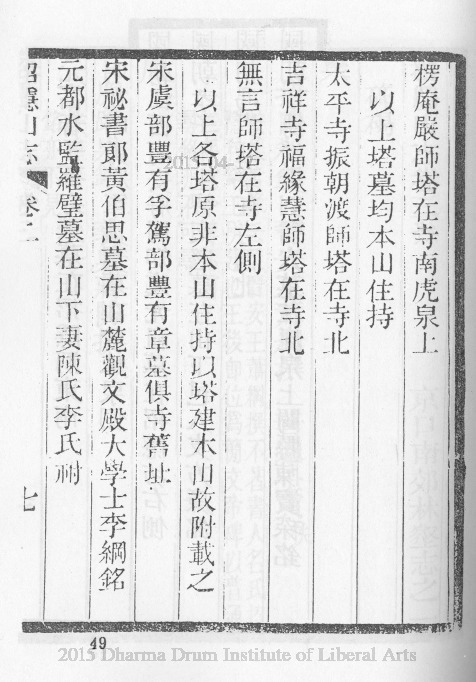 楞庵嚴師塔在寺南虎泉上
以上塔墓均本山住持
太平寺振朝渡師塔在寺北
吉祥寺福緣慧師塔在寺北
無言師塔在寺左側
以上各塔原非本山住持以塔建本山故附載之
宋虞部豐有孚駕部豐有章墓俱寺舊址
宋祕書郎黃伯思墓在山麓觀文殿大學士李綱銘
元都水監羅璧墓在山下妻陳氏李氏祔
招隱山志 卷二 七
49
2015 Dharma Drum Institute of Liberal Arts